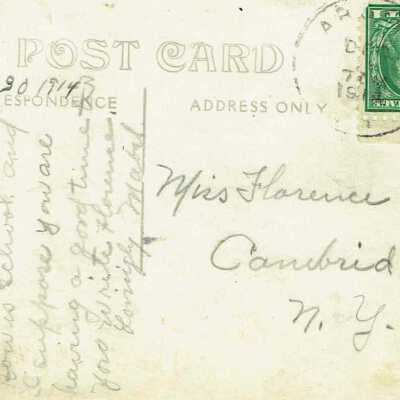 POST CARD
20 1914
ESPONDENCE
ADDRESS ONLY
school and
I suppose you are
having a good time
You Write Florence
Lovingly Mabel
Miss Florence
Cambrid
N.Y.